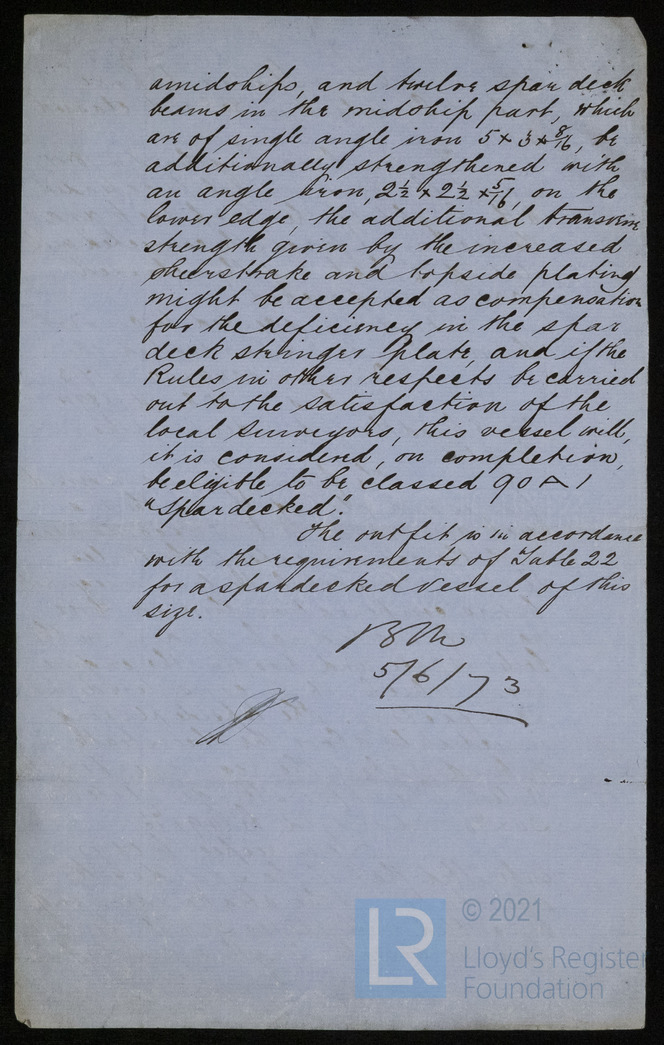 amidships, and twelve spar deck
beams in the midship part, which
are of single angle iron 5 x 3 x 8/16, be
additionally strengthened with
an angle iron, 2½ x 2½ x 5/16, on the
lower edge, the additional transverse
strength given by the increased
sheerstrake and topside plating
might be accepted as compensation
for the deficiency in the spar
deck stringer plate, and if the
Rules in other respects be carried
out to the satisfaction of the
local Surveyors, this vessel will,
it is considered, on completion,
be eligible to be classed 90 A 1
"Spardecked".
The outfit is in accordance
with the requirements of Table 22
for a spardecked vessel of this
size.
BM
5/6/73
LR
© 2021
Lloyd's Register
Foundation